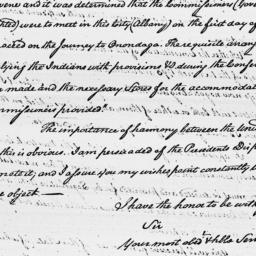 vene and it was determined that the Commissioners (you
ted) were to meet in this City (Albany) on the first day of
aced on the Journey to Onondaga. The requisite arran
lying the Indians with provisions &c during the Confer
made and the necessary Stores for the accommodat
mmissioners provided.
The importance of harmony between the Uni
this is obvious. I am persuaded of the Presidents Disp
mote it, and I assure you my wishes point constantly
e object
I have the honor to be with
Sir
Your most obdt & hble Ser